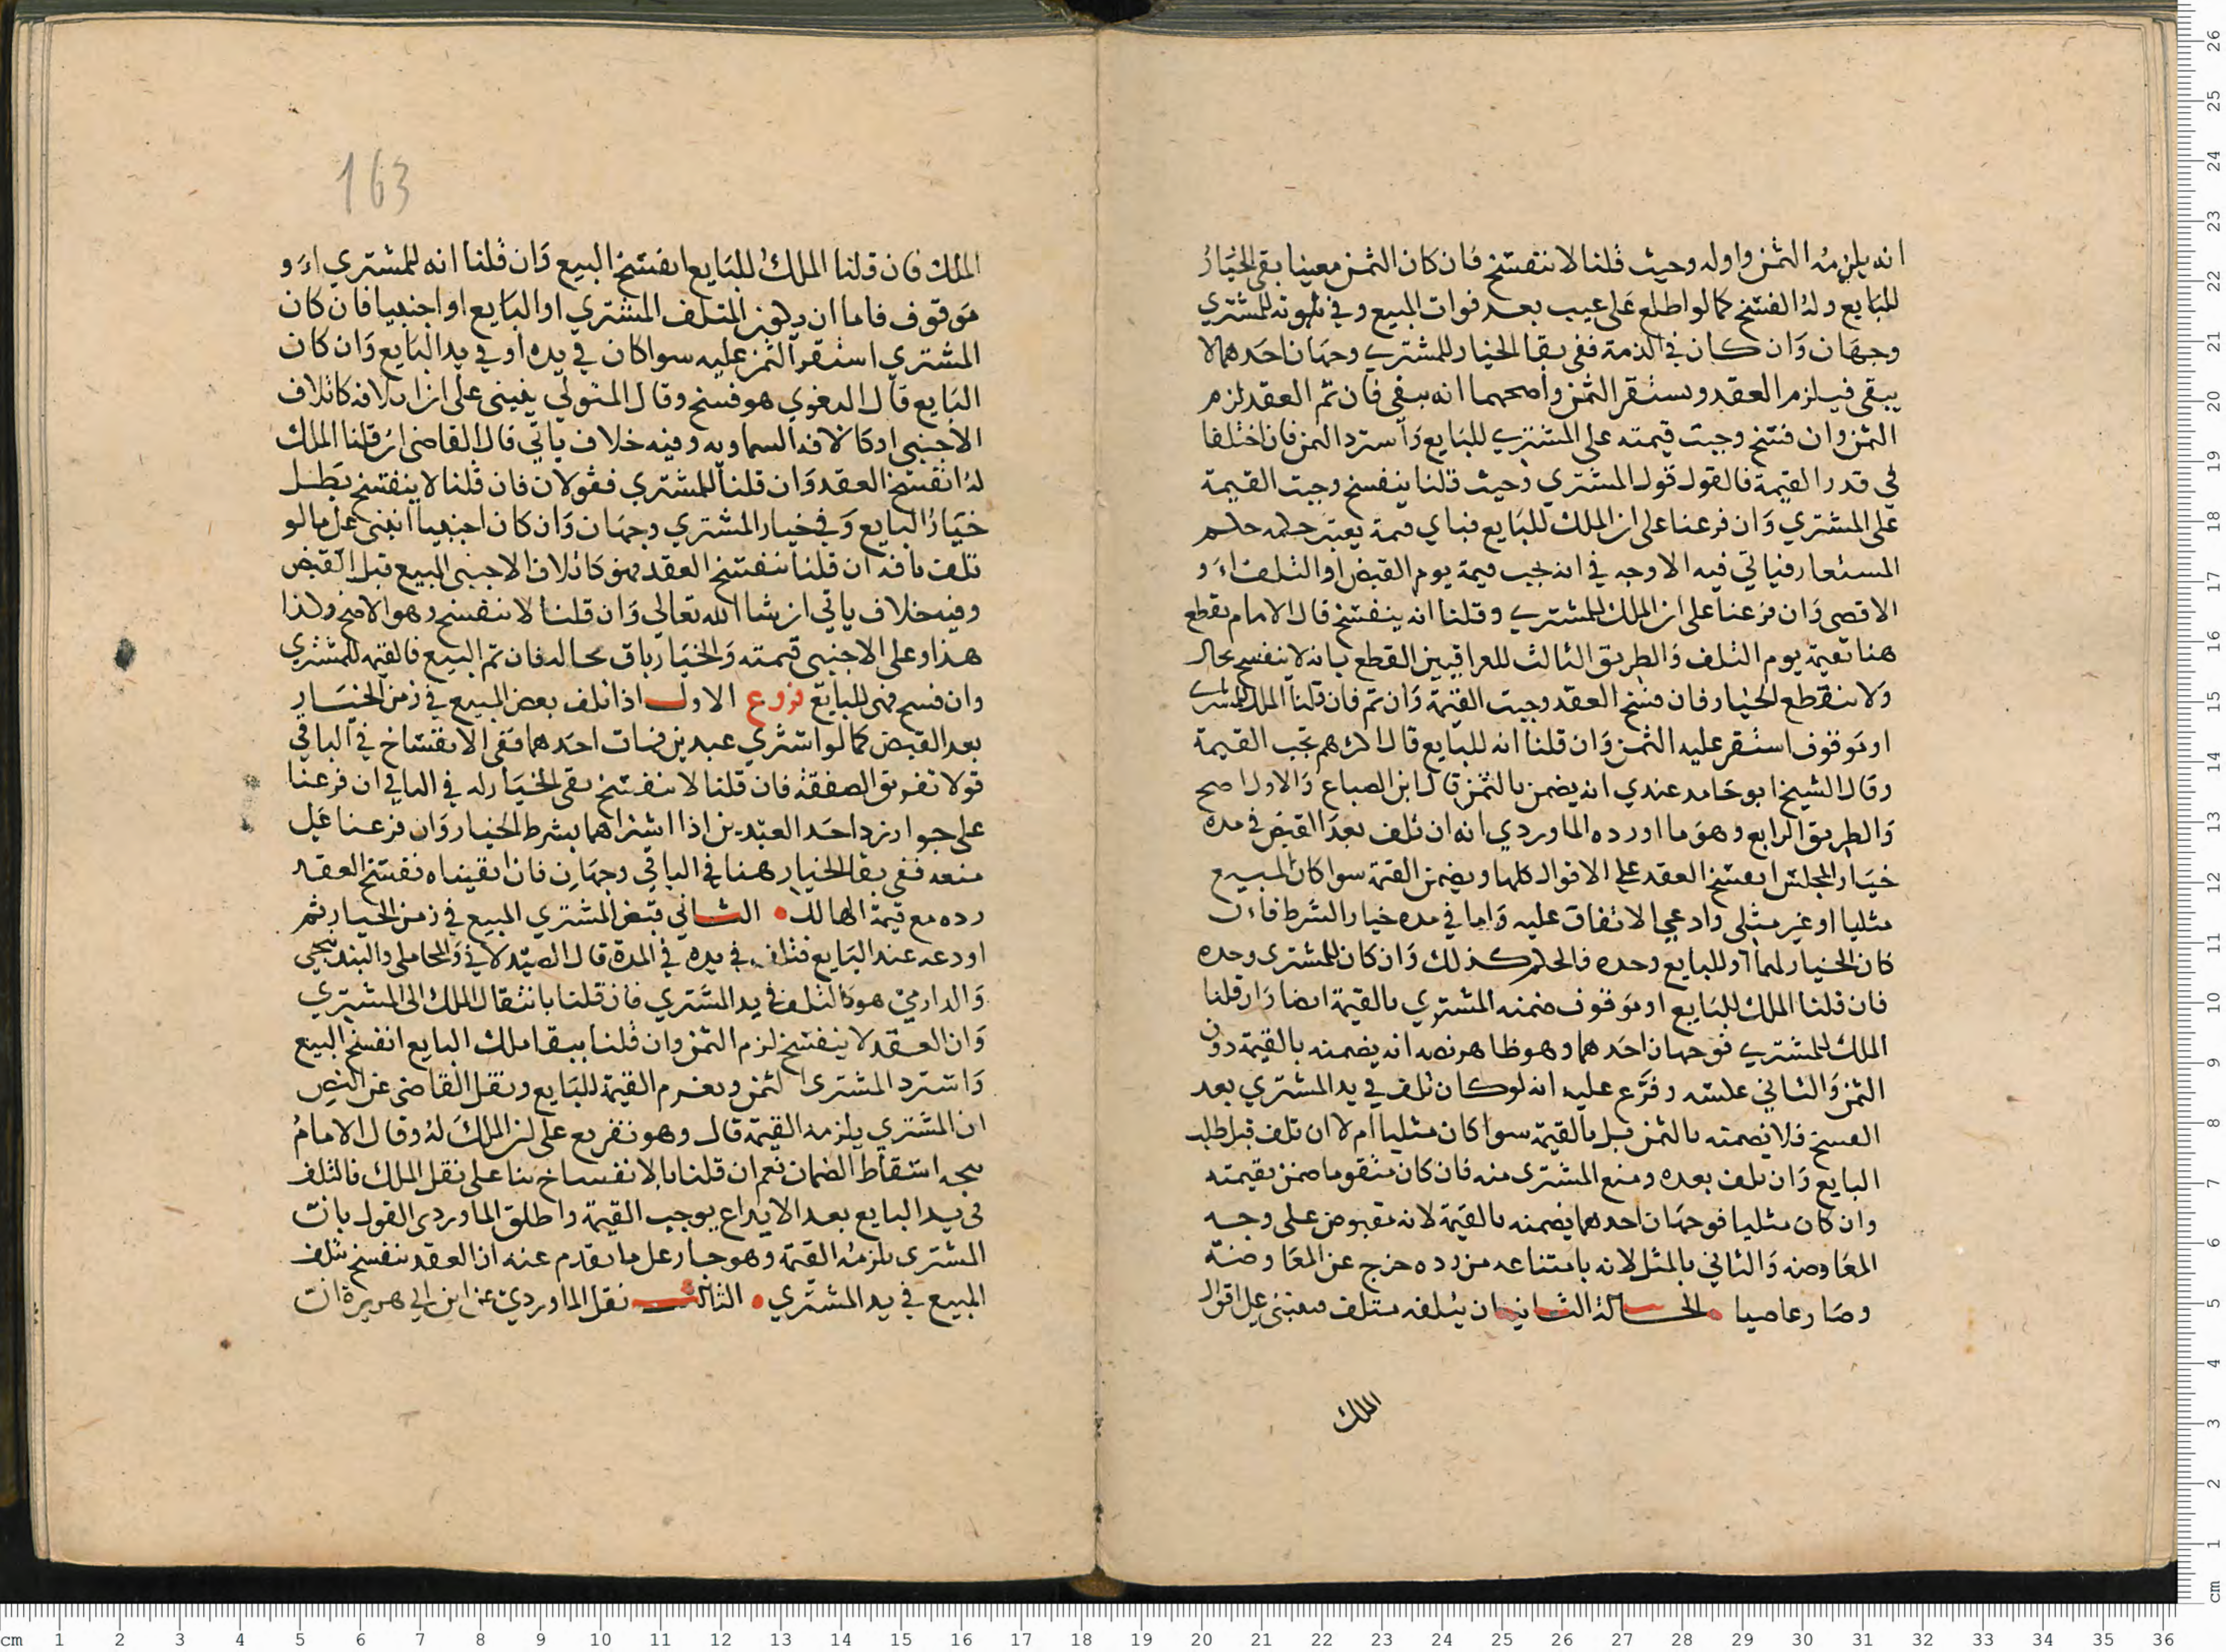 انه يلزمه الثمن واوله وحيث قلنا لا ننفسخ فان كان الثمن معينا بقى الخيار
للبايع وله الفسخ كما لو اطلع على عيب بعد فوات المبيع وفي ثبوته للمشتري
وجهان وان كان في الذمة ففي بقا الخيار للمشتري وجهان احدهما لا
يبقى فيلزم العقد ويستقر الثمن واصحهما انه يبقى فان تم العقد لزم
الثمن وان فسخ وجبت قيمته على المشتري للبايع واسترد الثمن فان اختلفا
في قدر القيمة فالقول قول المشتري وحيث قلنا ينفسخ وجبت القيمة
على المشتري وان فرعنا على ان الملك للبايع فباي قيمة يعتبر حكمه حكم
المستعار فياتي فيه الاوجه في انه تجب قيمة يوم القبض او التلف او
الاقصى وان فرعنا على ان الملك للمشتري وقلنا انه ينفسخ قال الامام يقطع
هنا بقيمة يوم التلف والطريق الثالث للعراقيين القطع بانه لا ينفسخ بحال
ولا ينقطع الخيار فان فسخ العقد وجبت القيمة وان تم فان قلنا الملك للمشتري
او موقوف استقر عليه الثمن وان قلنا انه للبايع قال اكثرهم تجب القيمة
وقال الشيخ ابو حامد عندي انه يضمن بالثمن قال ابن الصباغ والاول اصح
والطريق الرابع وهو ما اورده الماوردي انه ان تلف بعد القبض في مدة
خيار المجلس انفسخ العقد على الاقوال كلها ويضمن القيمة سوا كان المبيع
مثليا او غير مثلي وادعى الاتفاق عليه واما في مده خيار الشرط فان
كان الخيار لهما او للبايع وحده فالحكم كذلك وان كان للمشترى وحده
فان قلنا الملك للبايع او موقوف ضمنه المشتري بالقيمة ايضا وان قلنا
الملك للمشتري فوجهان احدهما وهو ظاهر نصه انه يضمنه بالقيمة دون
الثمن والثاني عكسه وفرع عليه انه لو كان تلف في يد المشتري بعد
الفسخ فلا نضمنه بالثمن بل بالقيمة سوا كان مثليا ام لا ان تلف قبل طلب
البايع وان تلف بعده ومنع المشترى منه فان كان متقوما ضمن بقيمته
وان كان مثليا فوجهان احدهما يضمنه بالقيمة لانه مقبوض على وجه
المعاوضه والثاني بالمثل لانه بامتناعه من رده خرج عن المعاوضة
وصار عاصيا الحالة الثانية ان يتلفه متلف فينبني على اقوال
الملك
163
الملك فان قلنا الملك للبايع انفسخ البيع وان قلنا انه للمشتري او
موقوف فاما ان يكون المتلف المشتري او البايع او اجنبيا فان كان
المشتري استقر الثمن عليه سوا كان في يده او في يد البايع وان كان
البايع قال البغوي هو فسخ وقال المتولي يبنى على ان اتلافه كاتلاف
الاجنبي او كالافه السماويه وفيه خلاف ياتي قال القاضي ان قلنا الملك
له انفسخ العقد وان قلنا للمشتري فقولان فان قلنا لا ينفسخ بطل
خيار البايع وفي خيار المشتري وجهان وان كان اجنبيا انبنى على ما لو
تلف بافه ان قلنا ينفسخ العقد فهو كاتلاف الاجنبي المبيع قبل القبض
وفيه خلاف ياتي ان شا الله تعالى وان قلنا لا ينفسخ وهو الاصح وكذا
هذا وعلى الاجنبي قيمته والخيار باق بحاله فان تم البيع فالقيمة للمشتري
وان فسخ فهي للبايع فروع الاول اذا تلف بعض المبيع في زمن الخيار
بعد القبض كما لو اشتري عبدين فمات احدهما ففي الانفساخ في الباقي
قولا تفريق الصفقة فان قلنا لا ينفسخ بقى الخيار له في الباقي ان فرعنا
على جواز رد احد العبدين اذا اشتراهما بشرط الخيار وان فرعنا على
منعه ففي بقا الخيار هنا في الباقي وجهان فان ابقيناه ففسخ العقد
رده مع قيمة الهالك الثاني قبض المشتري المبيع في زمن الخيار ثم
اودعه عند البايع فتلف في يده في المدة قال الصيدلاني والمحاملي والبندنيجي
والدارمي هو كالتلف في يد المشتري فان قلنا بانتقال الملك الى المشتري
وان العقد لا ينفسخ لزم الثمن وان قلنا ببقا ملك البايع انفسخ البيع
واسترد المشترى الثمن ويغرم القيمة للبايع ونقل القاضي عن النص
ان المشتري يلزمه القيمة قال وهو تفريع على ان الملك له وقال الامام
يتجه اسقاط الضمان نعم ان قلنا بالانفساخ بنا على نقل الملك فالتلف
في يد البايع بعد الايداع يوجب القيمة واطلق الماوردي القول بان
المشترى يلزمه القيمة وهو جار على ما تقدم عنه ان العقد ينفسخ بتلف
المبيع في يد المشتري الثالث نقل الماوردي عن ابن ابي هريرة ان